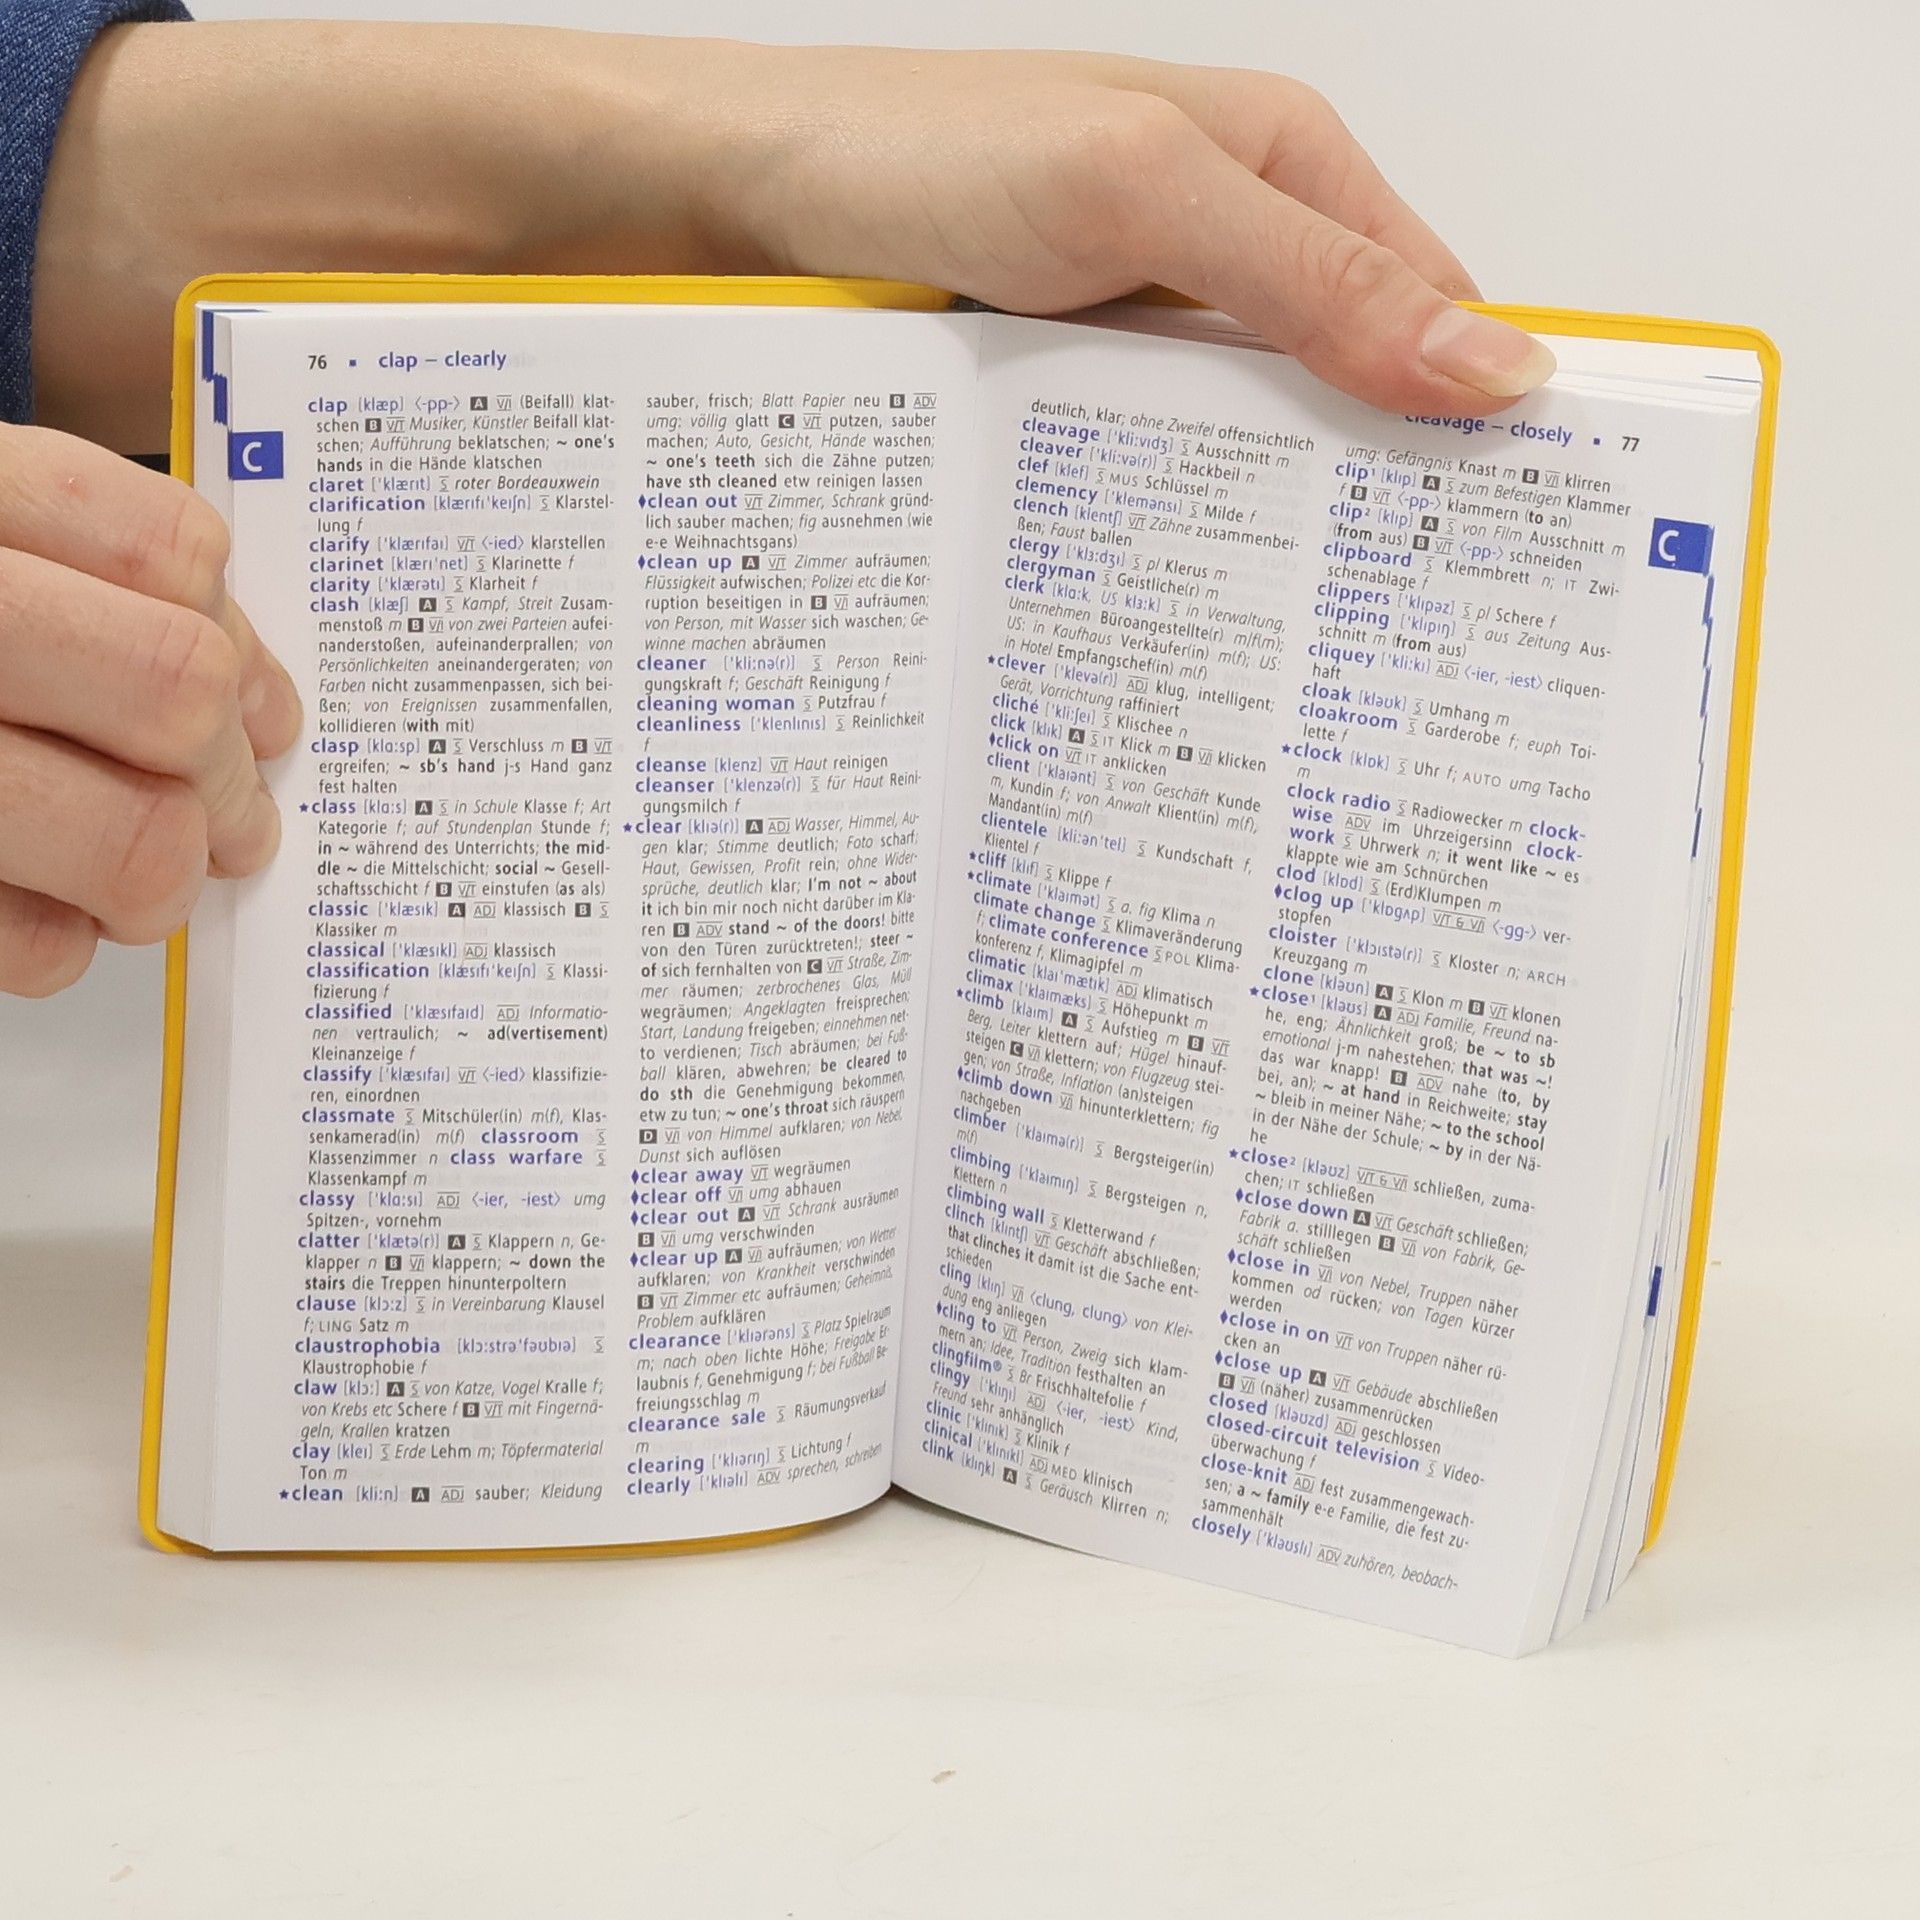 76 ▪ clap – clearly
C
clap [klæp] ⟨-pp-⟩ A V/I (Beifall) klat-
schen B V/T Musiker, Künstler Beifall klat-
schen; Aufführung beklatschen; ~ one's
hands in die Hände klatschen
claret ['klærıt] S roter Bordeauxwein
clarification [klærıfı'keıʃn] S Klarstel-
lung f
clarify ['klærıfaı] V/T ⟨-ied⟩ klarstellen
clarinet [klærı'net] S Klarinette f
clarity ['klærətı] S Klarheit f
clash [klæʃ] A S Kampf, Streit Zusam-
menstoß m B V/I von zwei Parteien aufei-
nanderstoßen, aufeinanderprallen; von
Persönlichkeiten aneinandergeraten; von
Farben nicht zusammenpassen, sich bei-
ßen; von Ereignissen zusammenfallen,
kollidieren (with mit)
clasp [klɑːsp] A S Verschluss m B V/T
ergreifen; ~ sb's hand j-s Hand ganz
fest halten
★class [klɑːs] A S in Schule Klasse f; Art
Kategorie f; auf Stundenplan Stunde f;
in ~ während des Unterrichts; the mid-
dle ~ die Mittelschicht; social ~ Gesell-
schaftsschicht f B V/T einstufen (as als)
classic ['klæsık] A ADJ klassisch B S
Klassiker m
classical ['klæsıkl] ADJ klassisch
classification [klæsıfı'keıʃn] S Klassi-
fizierung f
classified ['klæsıfaıd] ADJ Informatio-
nen vertraulich; ~ ad(vertisement)
Kleinanzeige f
classify ['klæsıfaı] V/T ⟨-ied⟩ klassifizie-
ren, einordnen
classmate S Mitschüler(in) m(f), Klas-
senkamerad(in) m(f) classroom S
Klassenzimmer n class warfare S
Klassenkampf m
classy ['klɑːsı] ADJ ⟨-ier, -iest⟩ umg
Spitzen-, vornehm
clatter ['klætə(r)] A S Klappern n, Ge-
klapper n B V/I klappern; ~ down the
stairs die Treppen hinunterpoltern
clause [klɔːz] S in Vereinbarung Klausel
f; LING Satz m
claustrophobia [klɔːstrə'fəʊbıə] S
Klaustrophobie f
claw [klɔː] A S von Katze, Vogel Kralle f;
von Krebs etc Schere f B V/T mit Fingernä-
geln, Krallen kratzen
clay [kleı] S Erde Lehm m; Töpfermaterial
Ton m
★clean [kliːn] A ADJ sauber; Kleidung
sauber, frisch; Blatt Papier neu B ADV
umg: völlig glatt C V/T putzen, sauber
machen; Auto, Gesicht, Hände waschen;
~ one's teeth sich die Zähne putzen;
have sth cleaned etw reinigen lassen
♦clean out V/T Zimmer, Schrank gründ-
lich sauber machen; fig ausnehmen (wie
e-e Weihnachtsgans)
♦clean up A V/T Zimmer aufräumen;
Flüssigkeit aufwischen; Polizei etc die Kor-
ruption beseitigen in B V/I aufräumen;
von Person, mit Wasser sich waschen; Ge-
winne machen abräumen
cleaner ['kliːnə(r)] S Person Reini-
gungskraft f; Geschäft Reinigung f
cleaning woman S Putzfrau f
cleanliness ['klenlınıs] S Reinlichkeit
f
cleanse [klenz] V/T Haut reinigen
cleanser ['klenzə(r)] S für Haut Reini-
gungsmilch f
★clear [klıə(r)] A ADJ Wasser, Himmel, Au-
gen klar; Stimme deutlich; Foto scharf;
Haut, Gewissen, Profit rein; ohne Wider-
sprüche, deutlich klar; I'm not ~ about
it ich bin mir noch nicht darüber im Kla-
ren B ADV stand ~ of the doors! bitte
von den Türen zurücktreten!; steer ~
of sich fernhalten von C V/T Straße, Zim-
mer räumen; zerbrochenes Glas, Müll
wegräumen; Angeklagten freisprechen;
Start, Landung freigeben; einnehmen net-
to verdienen; Tisch abräumen; bei Fuß-
ball klären, abwehren; be cleared to
do sth die Genehmigung bekommen,
etw zu tun; ~ one's throat sich räuspern
D V/I von Himmel aufklaren; von Nebel,
Dunst sich auflösen
♦clear away V/T wegräumen
♦clear off V/I umg abhauen
♦clear out A V/T Schrank ausräumen
B V/I umg verschwinden
♦clear up A V/I aufräumen; von Wetter
aufklaren; von Krankheit verschwinden
B V/T Zimmer etc aufräumen; Geheimnis,
Problem aufklären
clearance ['klıərəns] S Platz Spielraum
m; nach oben lichte Höhe; Freigabe Er-
laubnis f, Genehmigung f; bei Fußball Be-
freiungsschlag m
clearance sale S Räumungsverkauf
m
clearing ['klıərıŋ] S Lichtung f
clearly ['klıəlı] ADV sprechen, schreiben
cleavage – closely ▪ 77
C
deutlich, klar; ohne Zweifel offensichtlich
cleavage ['kliːvıdʒ] S Ausschnitt m
cleaver ['kliːvə(r)] S Hackbeil n
clef [klef] S MUS Schlüssel m
clemency ['klemənsı] S Milde f
clench [klentʃ] V/T Zähne zusammenbei-
ßen; Faust ballen
clergy ['klɜːdʒı] S pl Klerus m
clergyman S Geistliche(r) m
clerk [klɑːk, US klɜːk] S in Verwaltung,
Unternehmen Büroangestellte(r) m/f(m);
US: in Kaufhaus Verkäufer(in) m(f); US:
in Hotel Empfangschef(in) m(f)
★clever ['klevə(r)] ADJ klug, intelligent;
Gerät, Vorrichtung raffiniert
cliché ['kliːʃeı] S Klischee n
click [klık] A S IT Klick m B V/I klicken
♦click on V/T IT anklicken
client ['klaıənt] S von Geschäft Kunde
m, Kundin f; von Anwalt Klient(in) m(f),
Mandant(in) m(f)
clientele [kliːən'tel] S Kundschaft f,
Klientel f
★cliff [klıf] S Klippe f
★climate ['klaımət] S a. fig Klima n
climate change S Klimaveränderung
f; climate conference S POL Klima-
konferenz f, Klimagipfel m
climatic [klaı'mætık] ADJ klimatisch
climax ['klaımæks] S Höhepunkt m
★climb [klaım] A S Aufstieg m B V/T
Berg, Leiter klettern auf; Hügel hinauf-
steigen C V/I klettern; von Flugzeug stei-
gen; von Straße, Inflation (an)steigen
♦climb down V/I hinunterklettern; fig
nachgeben
climber ['klaımə(r)] S Bergsteiger(in)
m(f)
climbing ['klaımıŋ] S Bergsteigen n,
Klettern n
climbing wall S Kletterwand f
clinch [klıntʃ] V/T Geschäft abschließen;
that clinches it damit ist die Sache ent-
schieden
cling [klıŋ] V/I ⟨clung, clung⟩ von Klei-
dung eng anliegen
♦cling to V/T Person, Zweig sich klam-
mern an; Idee, Tradition festhalten an
clingfilm® S Br Frischhaltefolie f
clingy ['klıŋı] ADJ ⟨-ier, -iest⟩ Kind,
Freund sehr anhänglich
clinic ['klınık] S Klinik f
clinical ['klınıkl] ADJ MED klinisch
clink [klıŋk] A S Geräusch Klirren n;
umg: Gefängnis Knast m B V/I klirren
clip¹ [klıp] A S zum Befestigen Klammer
f B V/T ⟨-pp-⟩ klammern (to an)
clip² [klıp] A S von Film Ausschnitt m
(from aus) B V/T ⟨-pp-⟩ schneiden
clipboard S Klemmbrett n; IT Zwi-
schenablage f
clippers ['klıpəz] S pl Schere f
clipping ['klıpıŋ] S aus Zeitung Aus-
schnitt m (from aus)
cliquey ['kliːkı] ADJ ⟨-ier, -iest⟩ cliquen-
haft
cloak [kləʊk] S Umhang m
cloakroom S Garderobe f; euph Toi-
lette f
★clock [klɒk] S Uhr f; AUTO umg Tacho
m
clock radio S Radiowecker m clock-
wise ADV im Uhrzeigersinn clock-
work S Uhrwerk n; it went like ~ es
klappte wie am Schnürchen
clod [klɒd] S (Erd)Klumpen m
♦clog up ['klɒgʌp] V/T & V/I ⟨-gg-⟩ ver-
stopfen
cloister ['klɔıstə(r)] S Kloster n; ARCH
Kreuzgang m
clone [kləʊn] A S Klon m B V/T klonen
★close¹ [kləʊs] A ADJ Familie, Freund na-
he, eng; Ähnlichkeit groß; be ~ to sb
emotional j-m nahestehen; that was ~!
das war knapp! B ADV nahe (to, by
bei, an); ~ at hand in Reichweite; stay
~ bleib in meiner Nähe; ~ to the school
in der Nähe der Schule; ~ by in der Nä-
he
★close² [kləʊz] V/T & V/I schließen, zuma-
chen; IT schließen
♦close down A V/T Geschäft schließen;
Fabrik a. stilllegen B V/I von Fabrik, Ge-
schäft schließen
♦close in V/I von Nebel, Truppen näher
kommen od rücken; von Tagen kürzer
werden
♦close in on V/T von Truppen näher rü-
cken an
♦close up A V/T Gebäude abschließen
B V/I (näher) zusammenrücken
closed [kləʊzd] ADJ geschlossen
closed-circuit television S Video-
überwachung f
close-knit ADJ fest zusammengewach-
sen; a ~ family e-e Familie, die fest zu-
sammenhält
closely ['kləʊslı] ADV zuhören, beobach-